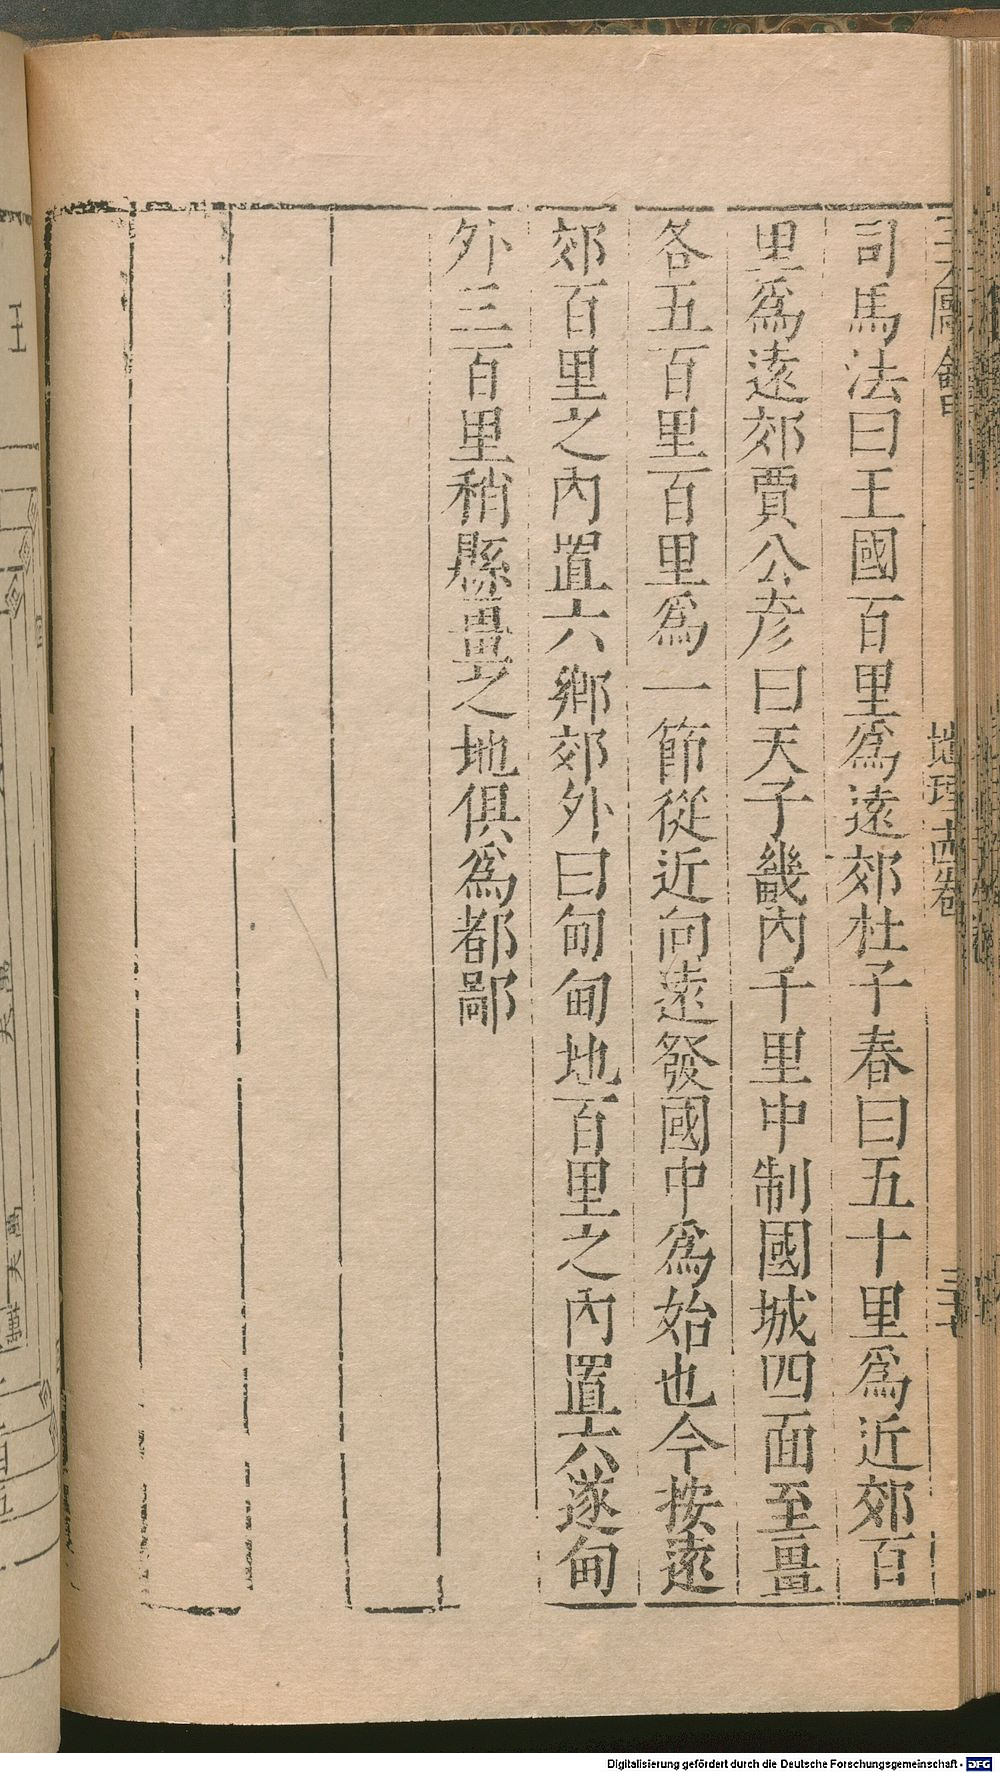 司馬法曰王國百里爲遠郊杜子春曰五十里爲近郊百
里爲遠郊賈公彦曰天子畿内千里中制國城四面至畺
各五百里百里爲一節從近向遠發國中爲始也今按遠
郊百里之内置六鄉郊外曰甸甸地百里之内置六遂甸
外三百里稍縣畺之地俱爲都鄙
地理 卷
Digitalisierung gefördert durch die Deutsche Forschungsgemeinschaft - DFG